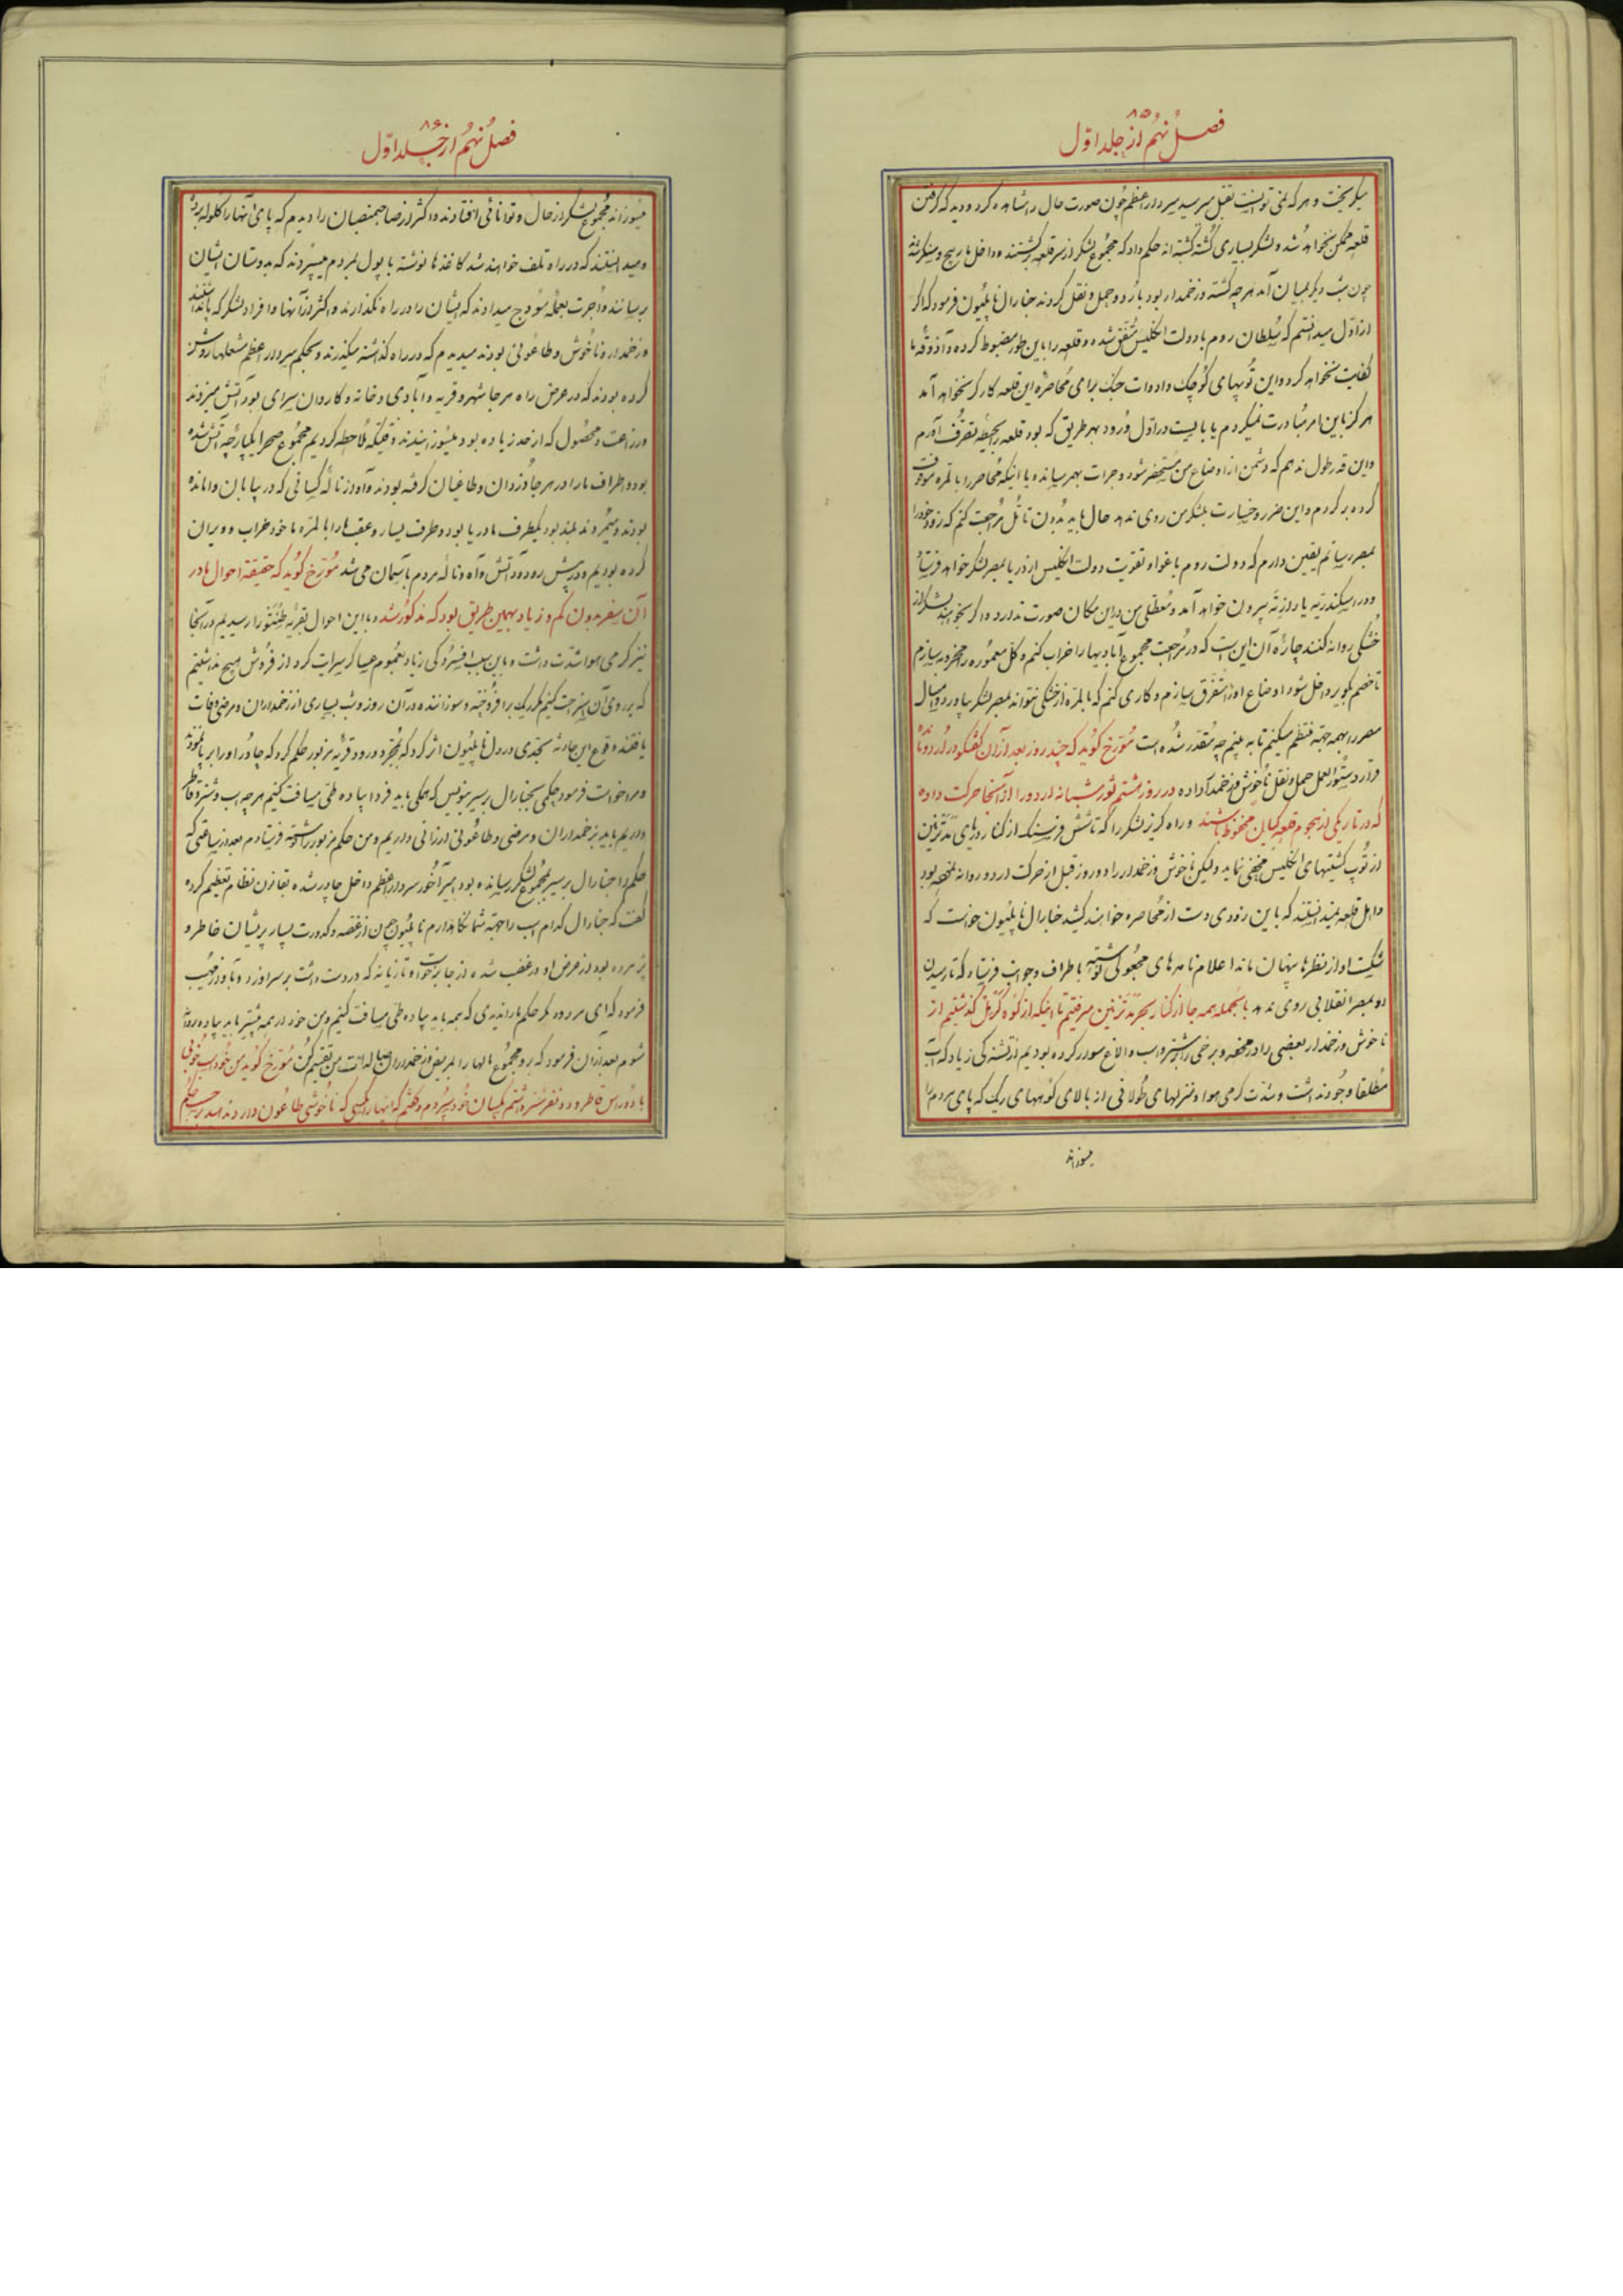 فصل نهم از جلد اول
۸۵
میگریخت و هر که نمی توانست بقتل میرسید سردار اعظم چون صورت حال را مشاهده کرد و دید که گرفتن
قلعه ممکن نخواهد شد و لشکر بسیاری کشته گشته اند حکم داد که مجموع لشکر از سر قلعه برگشتند و داخل مارپیچ و سنگر شد
چون شب دیگر بمیان آمد هر چه کشته و زخمدار بود باردو حمل و نقل کردند جنارال ناپلیون فرمود که اگر
از اول میدانستم که سلطان روم با دولت انگلیس متفق شده و قلعه را باین طور مضبوط کرده و آذوقه ما
کفایت نخواهد کرد و این توپهای کوچک و ادوات جنگ برای محاصره این قلعه کارگر نخواهد آمد
هرگز باین امر مبادرت نمیکردم یا بایست در اول ورود بهر طریق که بود قلعه را بحیطه تصرف آورم
و این قدر طول ندهم که دشمن از اوضاع من مستحضر شود و جرات بهم رساند و یا اینکه محاصره را بالمره موقوف
کرده برگردم و این ضرر و خسارت بلشکر من روی ندهد حال باید بدون تأمل مراجعت کنم که زود خود را
بمصر رسانم یقین دارم که دولت روم باغوا و تقویت دولت انگلیس از دریا بمصر لشکر خواهد فرستاد
و در اسکندریه یا در ازنه بیرون خواهد آمد و معطلی من در این مکان صورت ندارد و اگر بخواهند لشکر از
خشکی روانه کنند چاره آن این است که در مراجعت مجموع آبادیها را خراب کنم و کل معموره را مخروبه سازم
تا خصم بکویر داخل شود اوضاع او را متفرق سازم و کاری کنم که بالمره از خشکی نتواند بمصر لشکر بیاورد و امسال
مصر را بهمه جهة منظم میکنیم تا به بینم چه مقدر شده است مورخ گوید که چند روز بعد از آن گفتگو در اردو مانده
قرار و دستورالعمل حمل و نقل ناخوش و زخمدار داده در روز هشتم ثور شبانه اردو را از آنجا حرکت داده
که در تاریکی از هجوم قلعه گیان محفوظ باشند و راه گریز لشکر را که تا شش فرسنگ از کنار دریای مدترنین
از توپ کشتیهای انگلیس مخفی نماید و لیکن ناخوش و زخمدار را دو روز قبل از حرکت اردو روانه نموده بود
و اهل قلعه نمیدانستند که باین زودی دست از محاصره خواهند کشید جنارال ناپلیون خواست که
شکست او از نظرها پنهان ماند اعلام نامه های مجعولی نوشته باطراف و جوانب فرستاد که تا رسیدن
او بمصر انقلابی روی ندهد بالجمله همه جا از کنار بحر مدترنین میرفتیم تا اینکه از کوه کرمل گذشتیم از
ناخوش و زخمدار بعضی را در محفه و برخی را بشتر و اسب و الاغ سوار کرده بودیم از تشنگی زیاد که آب
مطلقا وجود نداشت و شدت گرمی هوا و منزلهای طولانی از بالای کوههای ریگ که پای مردم را
میسوزاند
فصل نهم از جلد اول
۸۶
میسوزاند مجموع لشکر از حال و توانائی افتادند و اکثر از صاحبمنصبان را دیدم که پای آنها را گلوله برده
و میدانستند که در راه تلف خواهند شد کاغذها نوشته با پول بمردم میسپردند که بدوستان ایشان
برسانند و اجرت بعمله هودج میدادند که ایشان را در راه نگذارند و اکثر از آنها و افراد لشکر که مانده
و زخمدار و ناخوش و طاعونی بودند میدیدم که در راه گذاشته میگذرند و بحکم سردار اعظم مشعلها روشن
کرده بودند که در عرض راه هر جا شهر و قریه و آبادی و خانه و کاروان سرای بود آتش میزدند
و زراعت و محصول که از حد زیاده بود میسوزانیدند وقتیکه ملاحظه کردیم مجموع صحرا یکپارچه آتش شده
بود و اطراف ما را در هر جا دزدان و طاغیان گرفته بودند و آواز ناله کسانی که در بیابان وامانده
بودند و میمردند بلند بود یکطرف ما دریا بود و طرف یسار و عقب ما را بالمره ما خود خراب و ویران
کرده بودیم و در پیش رو دود آتش و آه و ناله مردم بآسمان می شد مورخ گوید که حقیقة احوال ما در
آن سفر بدون کم و زیاد بهمین طریق بود که مذکور شد و با این احوال بقریه طنتورا رسیدیم در آنجا
نیز گرمی هوا شدت داشت و باین سبب افسردگی زیاد بعموم عساکر سرایت کرد از فروش هیچ نداشتیم
که بر روی آن استراحت کنیم مگر ریگ برافروخته و سوزاننده در آن روز و شب بسیاری از زخمداران و مرضی وفات
یافتند وقوع این حادثه بحدی در دل ناپلیون اثر کرد که بمجرد ورود قریه مزبور حکم کرد که چادر او را برپا نمودند
و مرا خواست فرمود حکمی بجنارال برسیر بنویس که همگی باید فردا پیاده طی مسافت کنیم هر چه اسب و شتر و قاطر
داریم باید بزخمداران و مرضی و طاعونی ارزانی داریم و من حکم مزبور را نوشته فرستادم بعد از ساعتی که
حکم را جنارال برسیر بمجموع لشکر رسانده بود میرآخور سردار اعظم داخل چادر شده بقانون نظام تعظیم کرده
گفت که جنارال کدام اسب را جهة شما نگاهدارم ناپلیون چون از غصه و کدورت بسیار پریشان خاطر و
پژمرده بود از عرض او در غضب شده از جا برخواست و تازیانه که در دست داشت بر سر او زد و بآواز مهیب
فرمود که ای مردود مگر حکم ما را ندیدی که همه باید پیاده طی مسافت کنیم و من خود از همه پیشتر باید پیاده روانه
شوم بعد از آن فرمود که برو مجموع مالها را بمریض و زخمداران تقسیم کن مورخ گوید من خود اسب خوبی
با دو رأس قاطر و دو نفر شتر داشتم بکسان خود سپردم و گفتم که اینها را بکسی که ناخوشی طاعون دارد ندهید بر حسب حکم